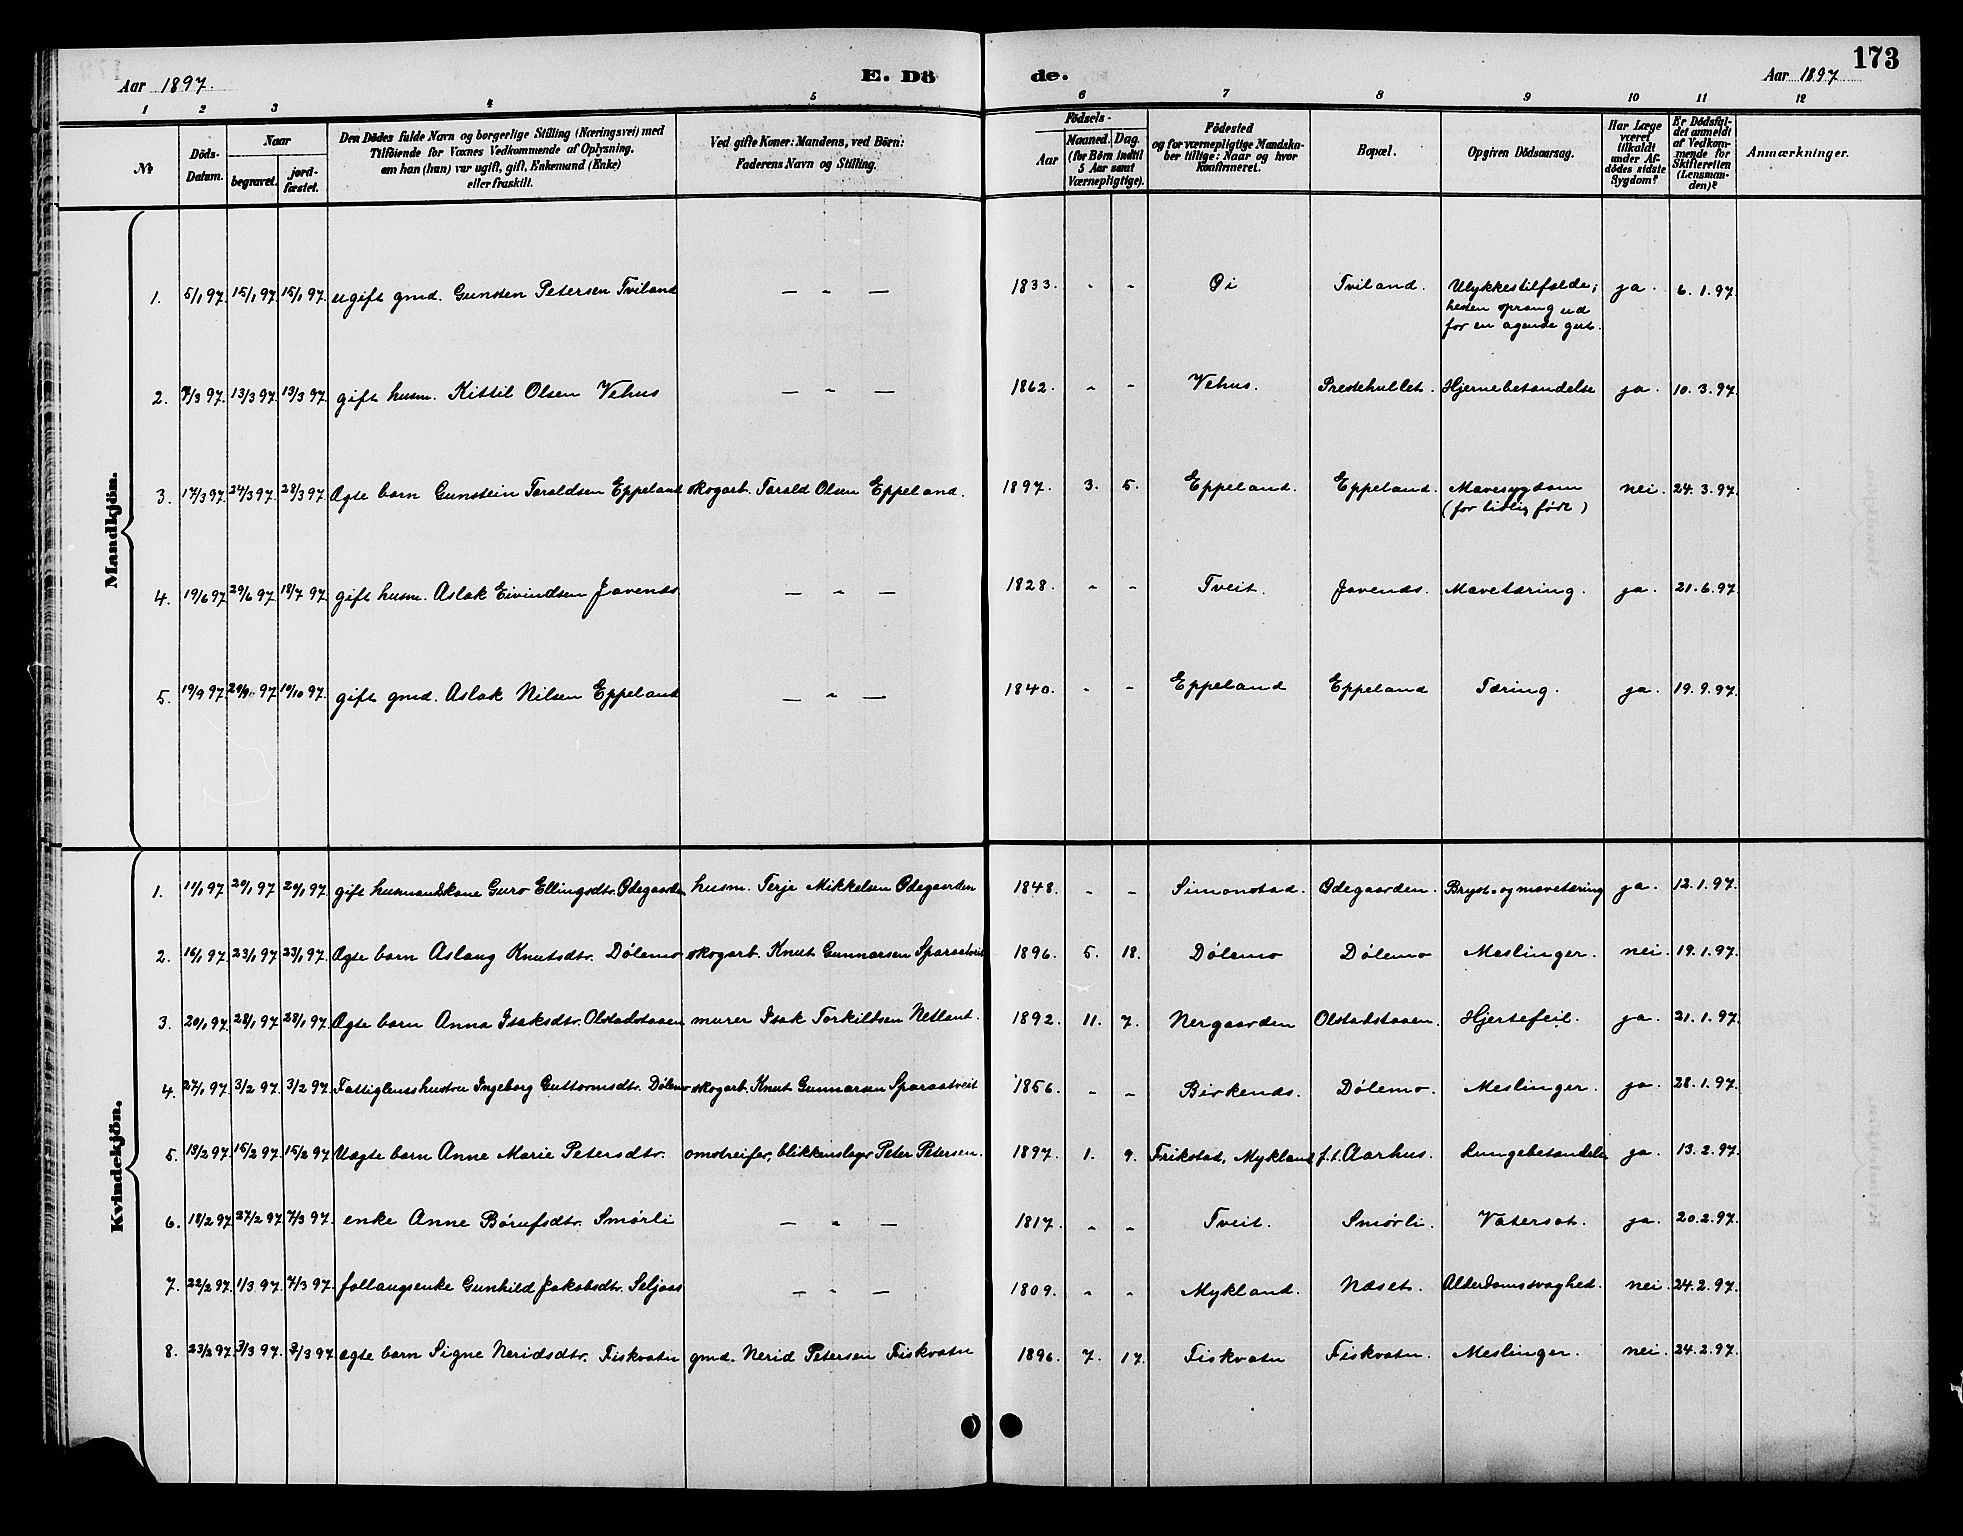 Aar 1897. E. Dö de. Aar 1897 173
1 2 3 4 5 6 7 8 9 10 11 12
№ Döds-Datum. Naar begravet. jordfæstet. Den Dödes fulde Navn og borgerlige Stilling (Næringsvei) med Tilföiende for Voxnes Vedkommende af Oplysning, om han (hun) var ugift, gift, Enkemand (Enke) eller fraskilt. Ved gifte Koner: Mandens, ved Börn: Faderens Navn og Stilling. Födsels- Aar Maaned. Dag. (for Börn indtil 5 Aar samt Værnepligtige). Födested og for værnepligtige Mandskaber tillige: Naar og hvor konfirmeret. Bopæl. Opgiven Dödsaarsag. Har Læge været tilkaldt under Afdödes sidste Sygdom? Er Dödsfaldet anmeldt af Vedkommende for Skifteretten (Lensmanden)? Anmærkninger.
Mandkjön.
1. 5/1 97. 15/1 97. 15/1 97. ugift gmd. Gunsten Petersen Tviland — " — 1833. - - Oi Tviland. Ulykkestilfælde; ja. 6. 1. 97.
hesten sprang ud
for en agende gut.
2. 9/3 97. 13/3 97. 13/3 97. gift husm. Kittil Olsen Vehus — " — 1862. - - Vehus. Prestehullet. Hjernebetændelse ja. 10. 3. 97.
3. 17/3 97. 24/3 97. 28/3 97. Ægte barn Gunstein Taraldsen Eppeland skogarb. Tarald Olsen Eppeland. 1897. 3. 5. Eppeland. Eppeland. Mavesygdom nei. 24. 3. 97.
(for tidlig født)
4. 19/6 97. 29/6 97. 18/7 97. gift husm. Aslak Eivindsen Javenes — " — 1828. - - Tveit. Javenes. Mavetæring. ja. 21. 6. 97.
5. 19/9 97. 97. 10/10 97. gift gmd. Aslak Nilsen Eppeland — " — 1840. - - Eppeland Eppeland Tæring. ja. 19. 9. 97.
Kvindekjön.
1. 11/1 97. 20/1 97 20/1 97. gift husmandskone Guro Ellingsdtr. Ødegaarden husm. Terje Mikkelsen Ødegaarden 1848. - - Simonstad. Ødegaarden. Bryst- og mavetæring ja. 12. 1. 97.
2. 16/1 97. 23/1 97. 23/1 97. Ægte barn Aslaug Knutsdtr. Dölemo skogarb. Knut Gunnarsen Sparsatveit 1896. 5. 18. Dölemo Dölemo Meslinger. nei. 19. 1. 97.
3. 20/1 97. 28/1 97. 28/1 97. Ægte barn Anna Isaksdtr. Olstadstaaen murer Isak Torkildsen Netlant. 1892. 11. 7. Nergaarden Olstadstaaen. Hjertefeil. ja. 21. 1. 97.
4. 27/1 97. 3/2 97. 3/2 97. Fattiglemshustru Ingeborg Guttormsdtr. Dölemo skogarb. Knut Gunnarsen Sparsatveit 1856. - - Birkenes. Dölemo. Meslinger. ja. 28. 1. 97.
5. 13/2 97. 15/2 97. 15/2 97. Uægte barn Anne Marie Petersdtr. omstreifer, blikkenslager Peter Petersen. 1897. 1. 9. Frikstad, Mykland f.t. Aarhus. Lungebetændelse ja. 13. 2. 97.
6. 18/2 97. 27/2 97. 7/3 97. enke Anne Börufsdtr. Smörli — " — 1817. - - Tveit. Smörli. Vatersot. ja. 20. 2. 97.
7. 22/2 97. 1/3 97. 7/3 97. follaugsenke Gunhild Jakobsdtr. Seljaas — " — 1809. - - Mykland. Næset. Alderdomssvaghed. nei. 24. 2. 97.
8. 23/2 97. 3/3 97. 3/3 97 ægte barn Signe Neridsdtr. Fiskvatn gmd. Nerid Petersen Fiskvatn 1896. 7. 17. Fiskvatn Fiskvatn. Meslinger. nei. 24. 2. 97.